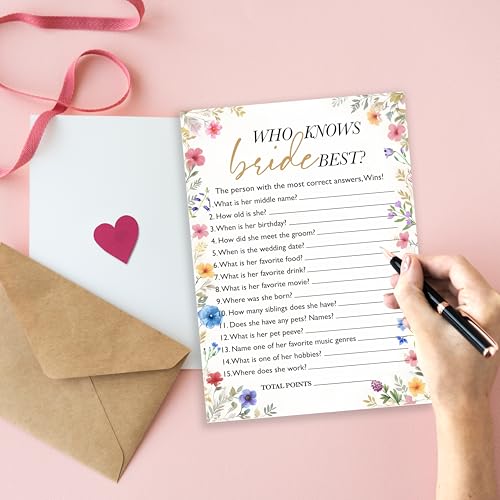 WHO KNOWS
bride BEST?
The person with the most correct answers, Wins!
1. What is her middle name?
2. How old is she?
3. When is her birthday?
4. How did she meet the groom?
5. When is the wedding date?
6. What is her favorite food?
7. What is her favorite drink?
8. What is her favorite movie?
9. Where was she born?
10. How many siblings does she have?
11. Does she have any pets? Names?
12. What is her pet peeve?
13. Name one of her favorite music genres
14. What is one of her hobbies?
15. Where does she work?
TOTAL POINTS